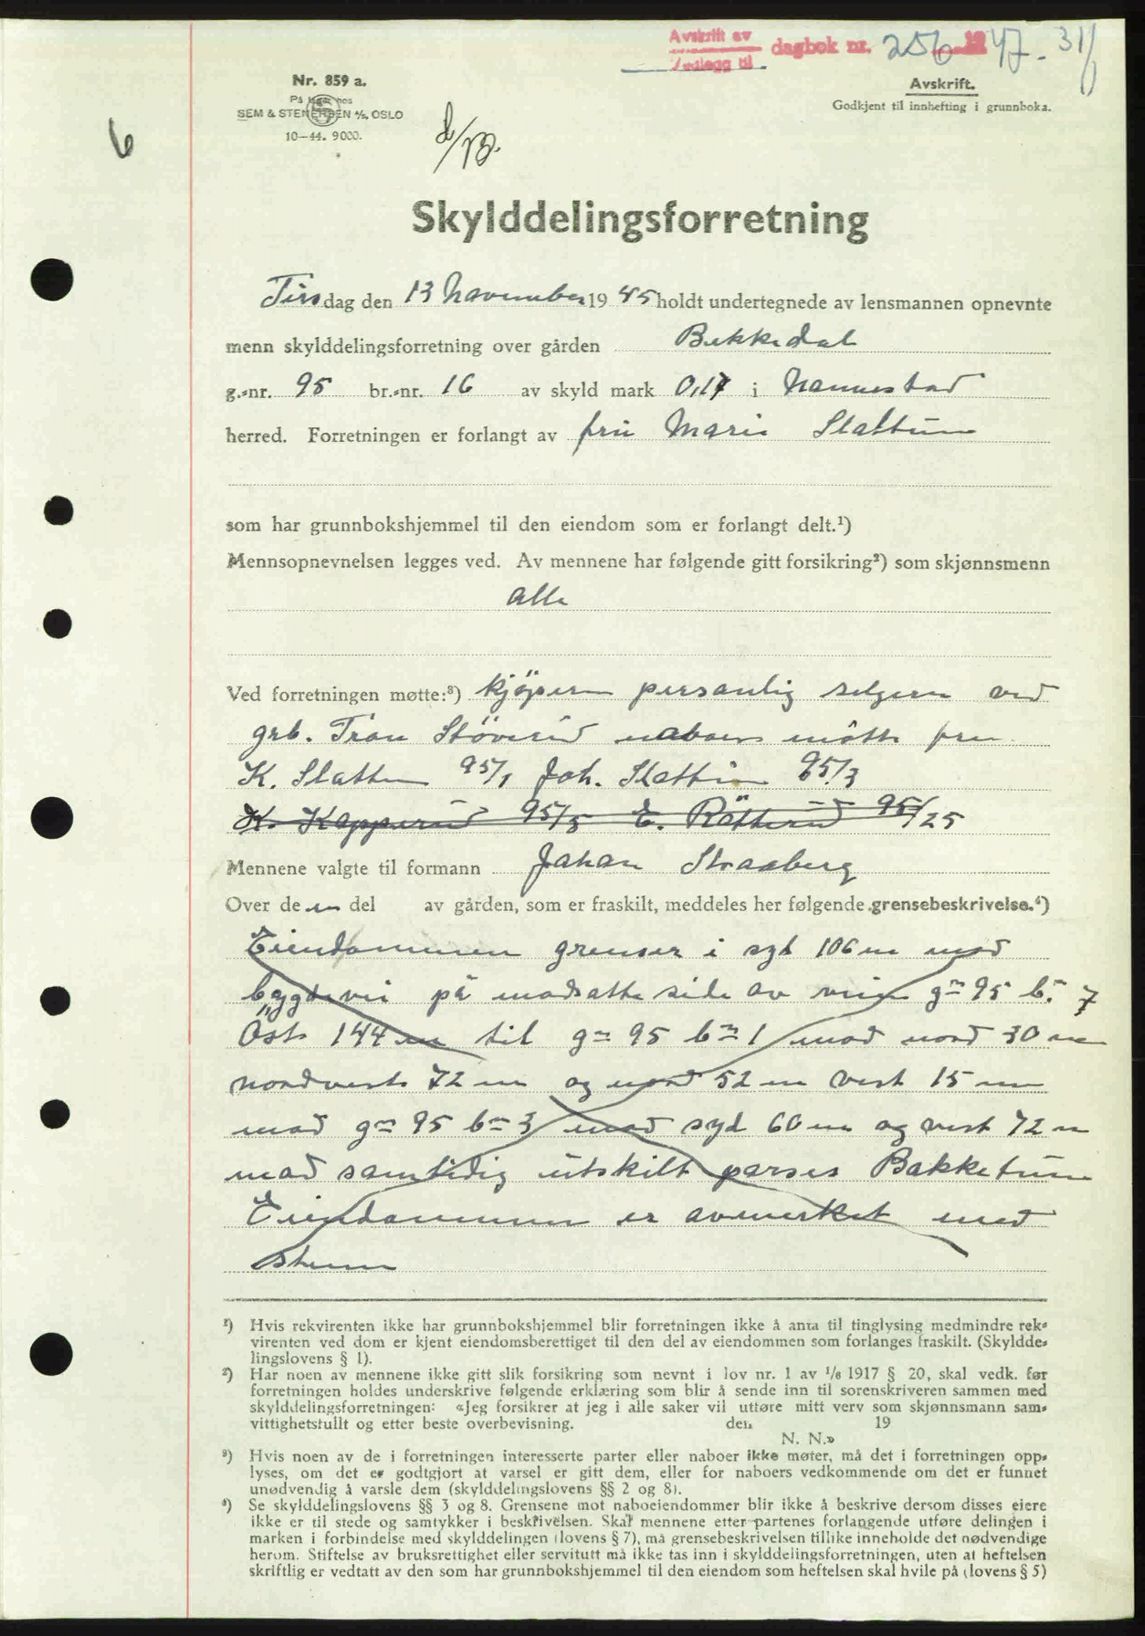 Avskrift av
Vedlegg til dagbok nr. 256 1947. 31/1
Avskrift.
Godkjent til innhefting i grunnboka.
Nr. 859 a.
På lager hos
SEM & STENERSEN A/S, OSLO
10—44. 9000.
6
Skylddelingsforretning
Tirsdag den 13 November 1945 holdt undertegnede av lensmannen opnevnte
menn skylddelingsforretning over gården Bakkedal
g.-nr. 95 br.-nr. 16 av skyld mark 0,17 i Nannestad
herred. Forretningen er forlangt av fru Marie Slattum
som har grunnbokshjemmel til den eiendom som er forlangt delt.¹)
Mennsopnevnelsen legges ved. Av mennene har følgende gitt forsikring²) som skjønnsmenn
alle
Ved forretningen møtte:³) kjöperen personlig selgeren ved
grb. Tron Stöverud naboer mötte fru
K. Slattum 95/1 Joh. Slattum 95/3
K. Kapperud 95/5 E. Rötterud 95/25
Mennene valgte til formann Johan Straaberg
Over de en del av gården, som er fraskilt, meddeles her følgende grensebeskrivelse.⁴)
Eiendommen grenser i syd 106 m mod
bygdevei på modsatte side av veien gn 95 b. 7
Öst 144 m til gn 95 bn 1 mod nord 30 m
nordvest 72 m og nord 52 m vest 15 m
mod gn 95 bn 3 mod syd 60 m og vest 72 m
mod samtidig utskilt parsel Bakketun
Eiendommen er avmerket med
stenn
¹) Hvis rekvirenten ikke har grunnbokshjemmel blir forretningen ikke å anta til tinglysing medmindre rek-
virenten ved dom er kjent eiendomsberettiget til den del av eiendommen som forlanges fraskilt. (Skyldde-
lingslovens § 1).
²) Har noen av mennene ikke gitt slik forsikring som nevnt i lov nr. 1 av ¹/₆ 1917 § 20, skal vedk. før
forretningen holdes underskrive følgende erklæring som blir å sende inn til sorenskriveren sammen med
skylddelingsforretningen: «Jeg forsikrer at jeg i alle saker vil utføre mitt verv som skjønnsmann sam-
vittighetsfullt og etter beste overbevisning. den 19
N. N.»
³) Hvis noen av de i forretningen interesserte parter eller naboer ikke møter, må det i forretningen opp-
lyses, om det er godtgjort at varsel er gitt dem, eller for naboers vedkommende om det er funnet
unødvendig å varsle dem (skylddelingslovens §§ 2 og 8).
⁴) Se skylddelingslovens §§ 3 og 8. Grensene mot naboeiendommer blir ikke å beskrive dersom disses eiere
ikke er til stede og samtykker i beskrivelsen. Skal mennene etter partenes forlangende utføre delingen i
marken i forbindelse med skylddelingen (lovens § 7), må grensebeskrivelsen tillike inneholde det nødvendige
herom. Stiftelse av bruksrettighet eller servitutt må ikke tas inn i skylddelingsforretningen, uten at heftelsen
skriftlig er vedtatt av den som har grunnbokshjemmel til den eiendom som heftelsen skal hvile på (lovens § 5)